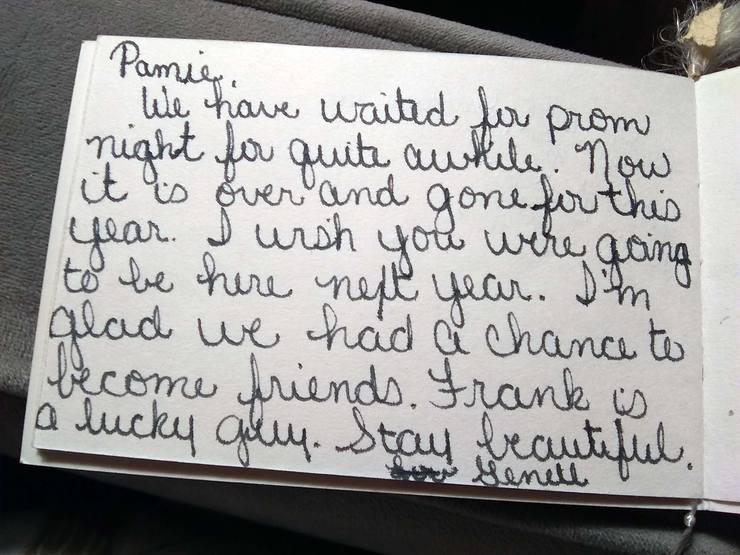 Pamie,
We have waited for prom
night for quite awhile. Now
it is over and gone for this
year. I wish you were going
to be here next year. I'm
glad we had a chance to
become friends. Frank is
a lucky guy. Stay beautiful.
Genell